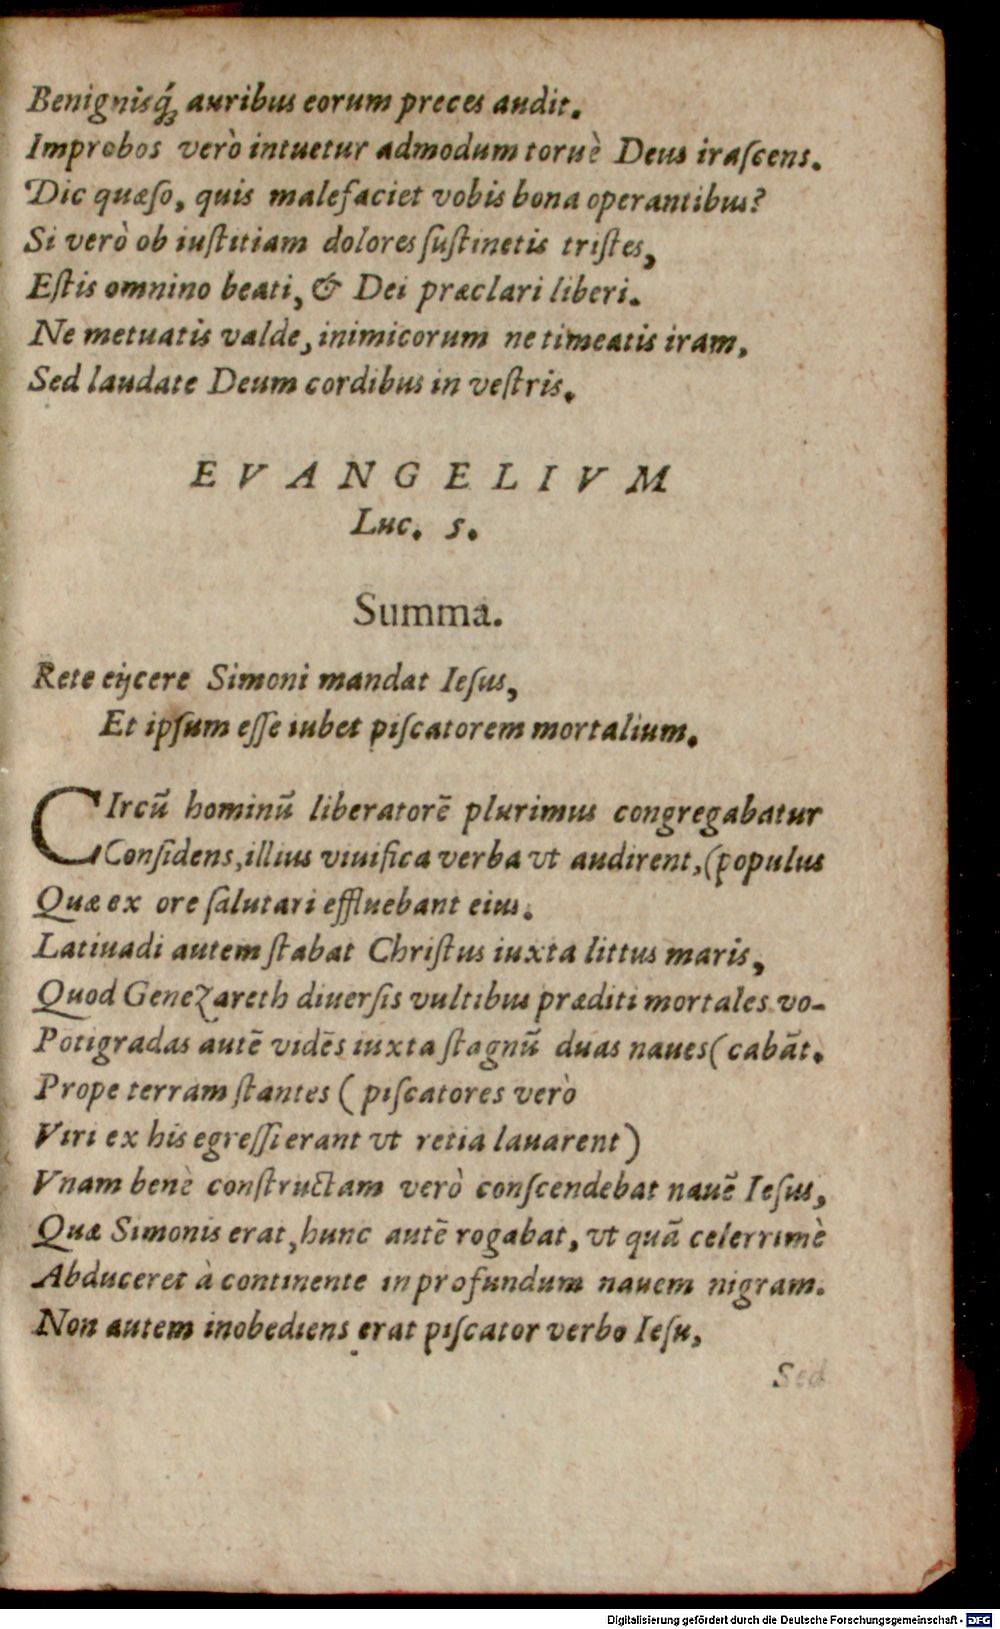 Benignisq́; auribus eorum preces audit.
Improbos verò intuetur admodum toruè Deus iraſcens.
Dic quæſo, quis malefaciet vobis bona operantibus?
Si verò ob iuſtitiam dolores ſuſtinetis triſtes,
Eſtis omnino beati, & Dei præclari liberi.
Ne metuatis valde, inimicorum ne timeatis iram,
Sed laudate Deum cordibus in veſtris.
EVANGELIVM
Luc. 5.
Summa.
Rete eijcere Simoni mandat Ieſus,
Et ipſum eſſe iubet piſcatorem mortalium.
CIrcũ hominũ liberatorẽ plurimus congregabatur
Conſidens, illius viuifica verba vt audirent, (populus
Quæ ex ore ſalutari effluebant eius.
Latiuadi autem ſtabat Chriſtus iuxta littus maris,
Quod Genezareth diuerſis vultibus præditi mortales vo-
Potigradas autẽ vidẽs iuxta ſtagnũ duas naues (cabãt.
Prope terram ſtantes (piſcatores verò
Viri ex his egreſſi erant vt retia lauarent)
Vnam benè conſtructam verò conſcendebat nauẽ Ieſus,
Quæ Simonis erat, hunc autẽ rogabat, vt quã celerrimè
Abduceret à continente in profundum nauem nigram.
Non autem inobediens erat piſcator verbo Ieſu,
Sed
Digitalisierung gefördert durch die Deutsche Forschungsgemeinschaft - DFG